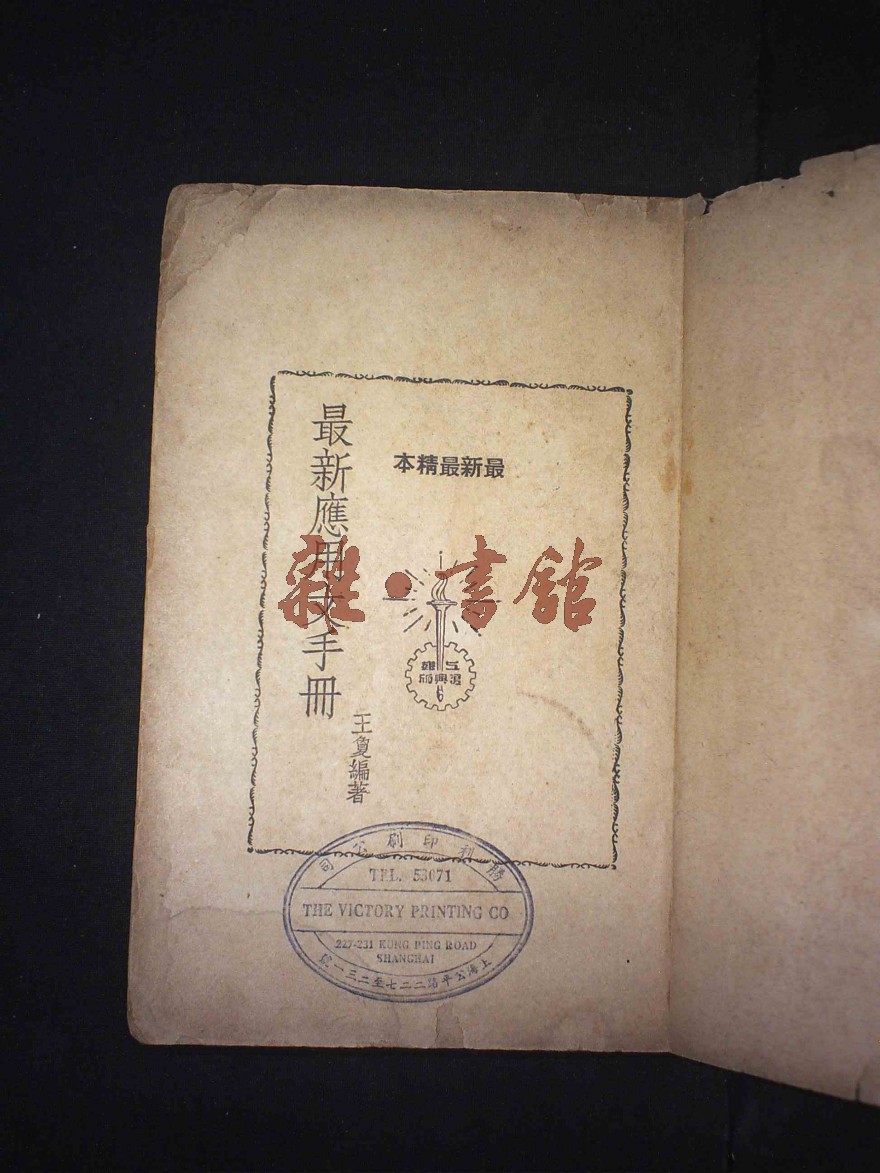 最新最精本
最新應用文手冊
王夐編著
雜·書館
勝利印刷公司
TEL. 53071
THE VICTORY PRINTING CO
227-231 KUNG PING ROAD
SHANGHAI
上海公平路二二七至二三一號